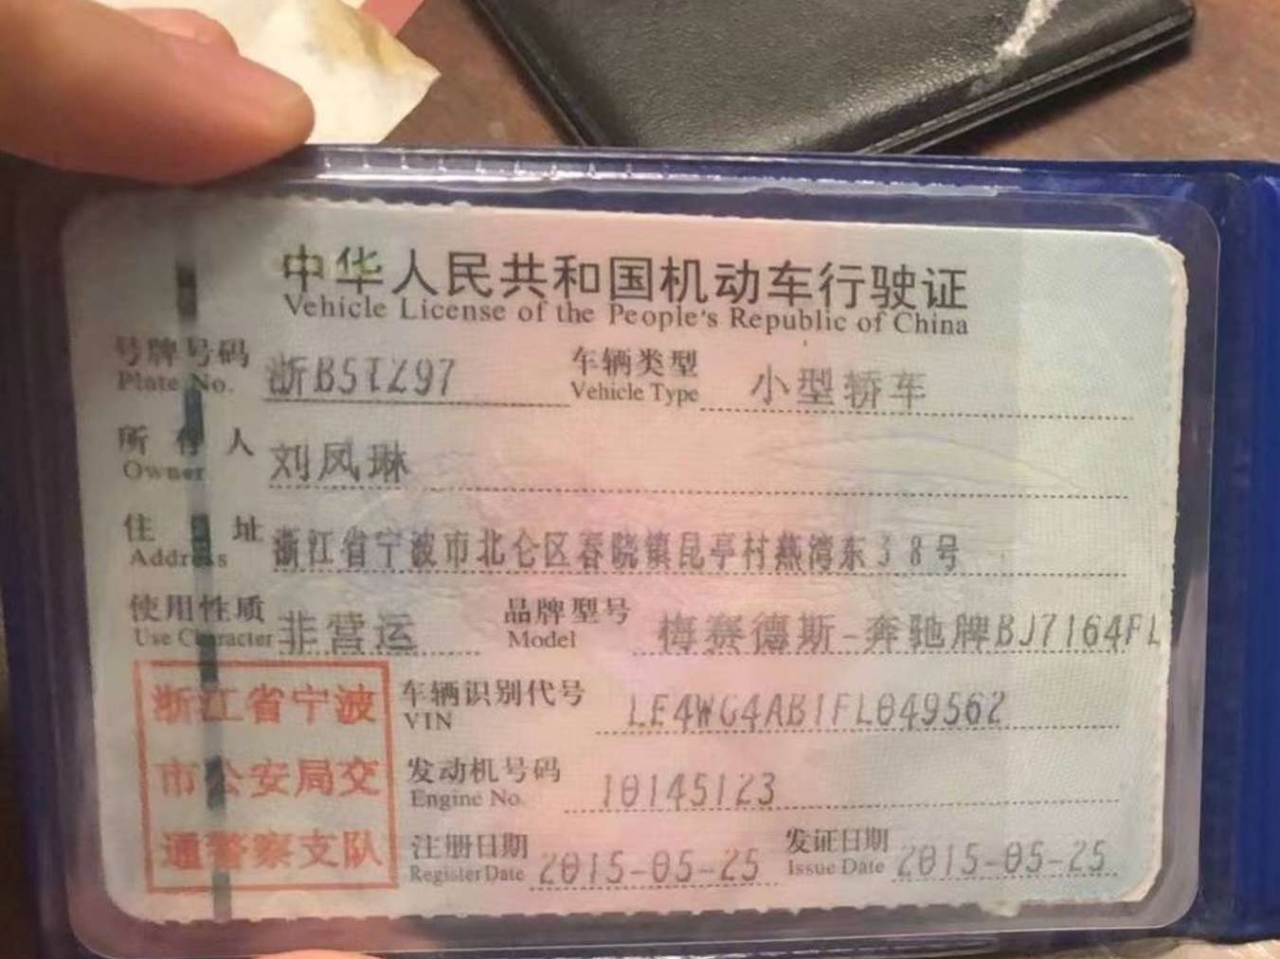 中华人民共和国机动车行驶证
Vehicle License of the People's Republic of China
号牌号码 浙B5TZ97 车辆类型 小型轿车
Plate No. Vehicle Type
所有人 刘凤琳
Owner
住址 浙江省宁波市北仑区春晓镇昆亭村燕湾东38号
Address
使用性质 非营运 品牌型号 梅赛德斯-奔驰牌BJ7164FL
Use Character Model
浙江省宁波 车辆识别代号 LE4WG4AB1FL049562
VIN
市公安局交 发动机号码 10145123
Engine No.
通警察支队 注册日期 2015-05-25 发证日期 2015-05-25
Register Date Issue Date